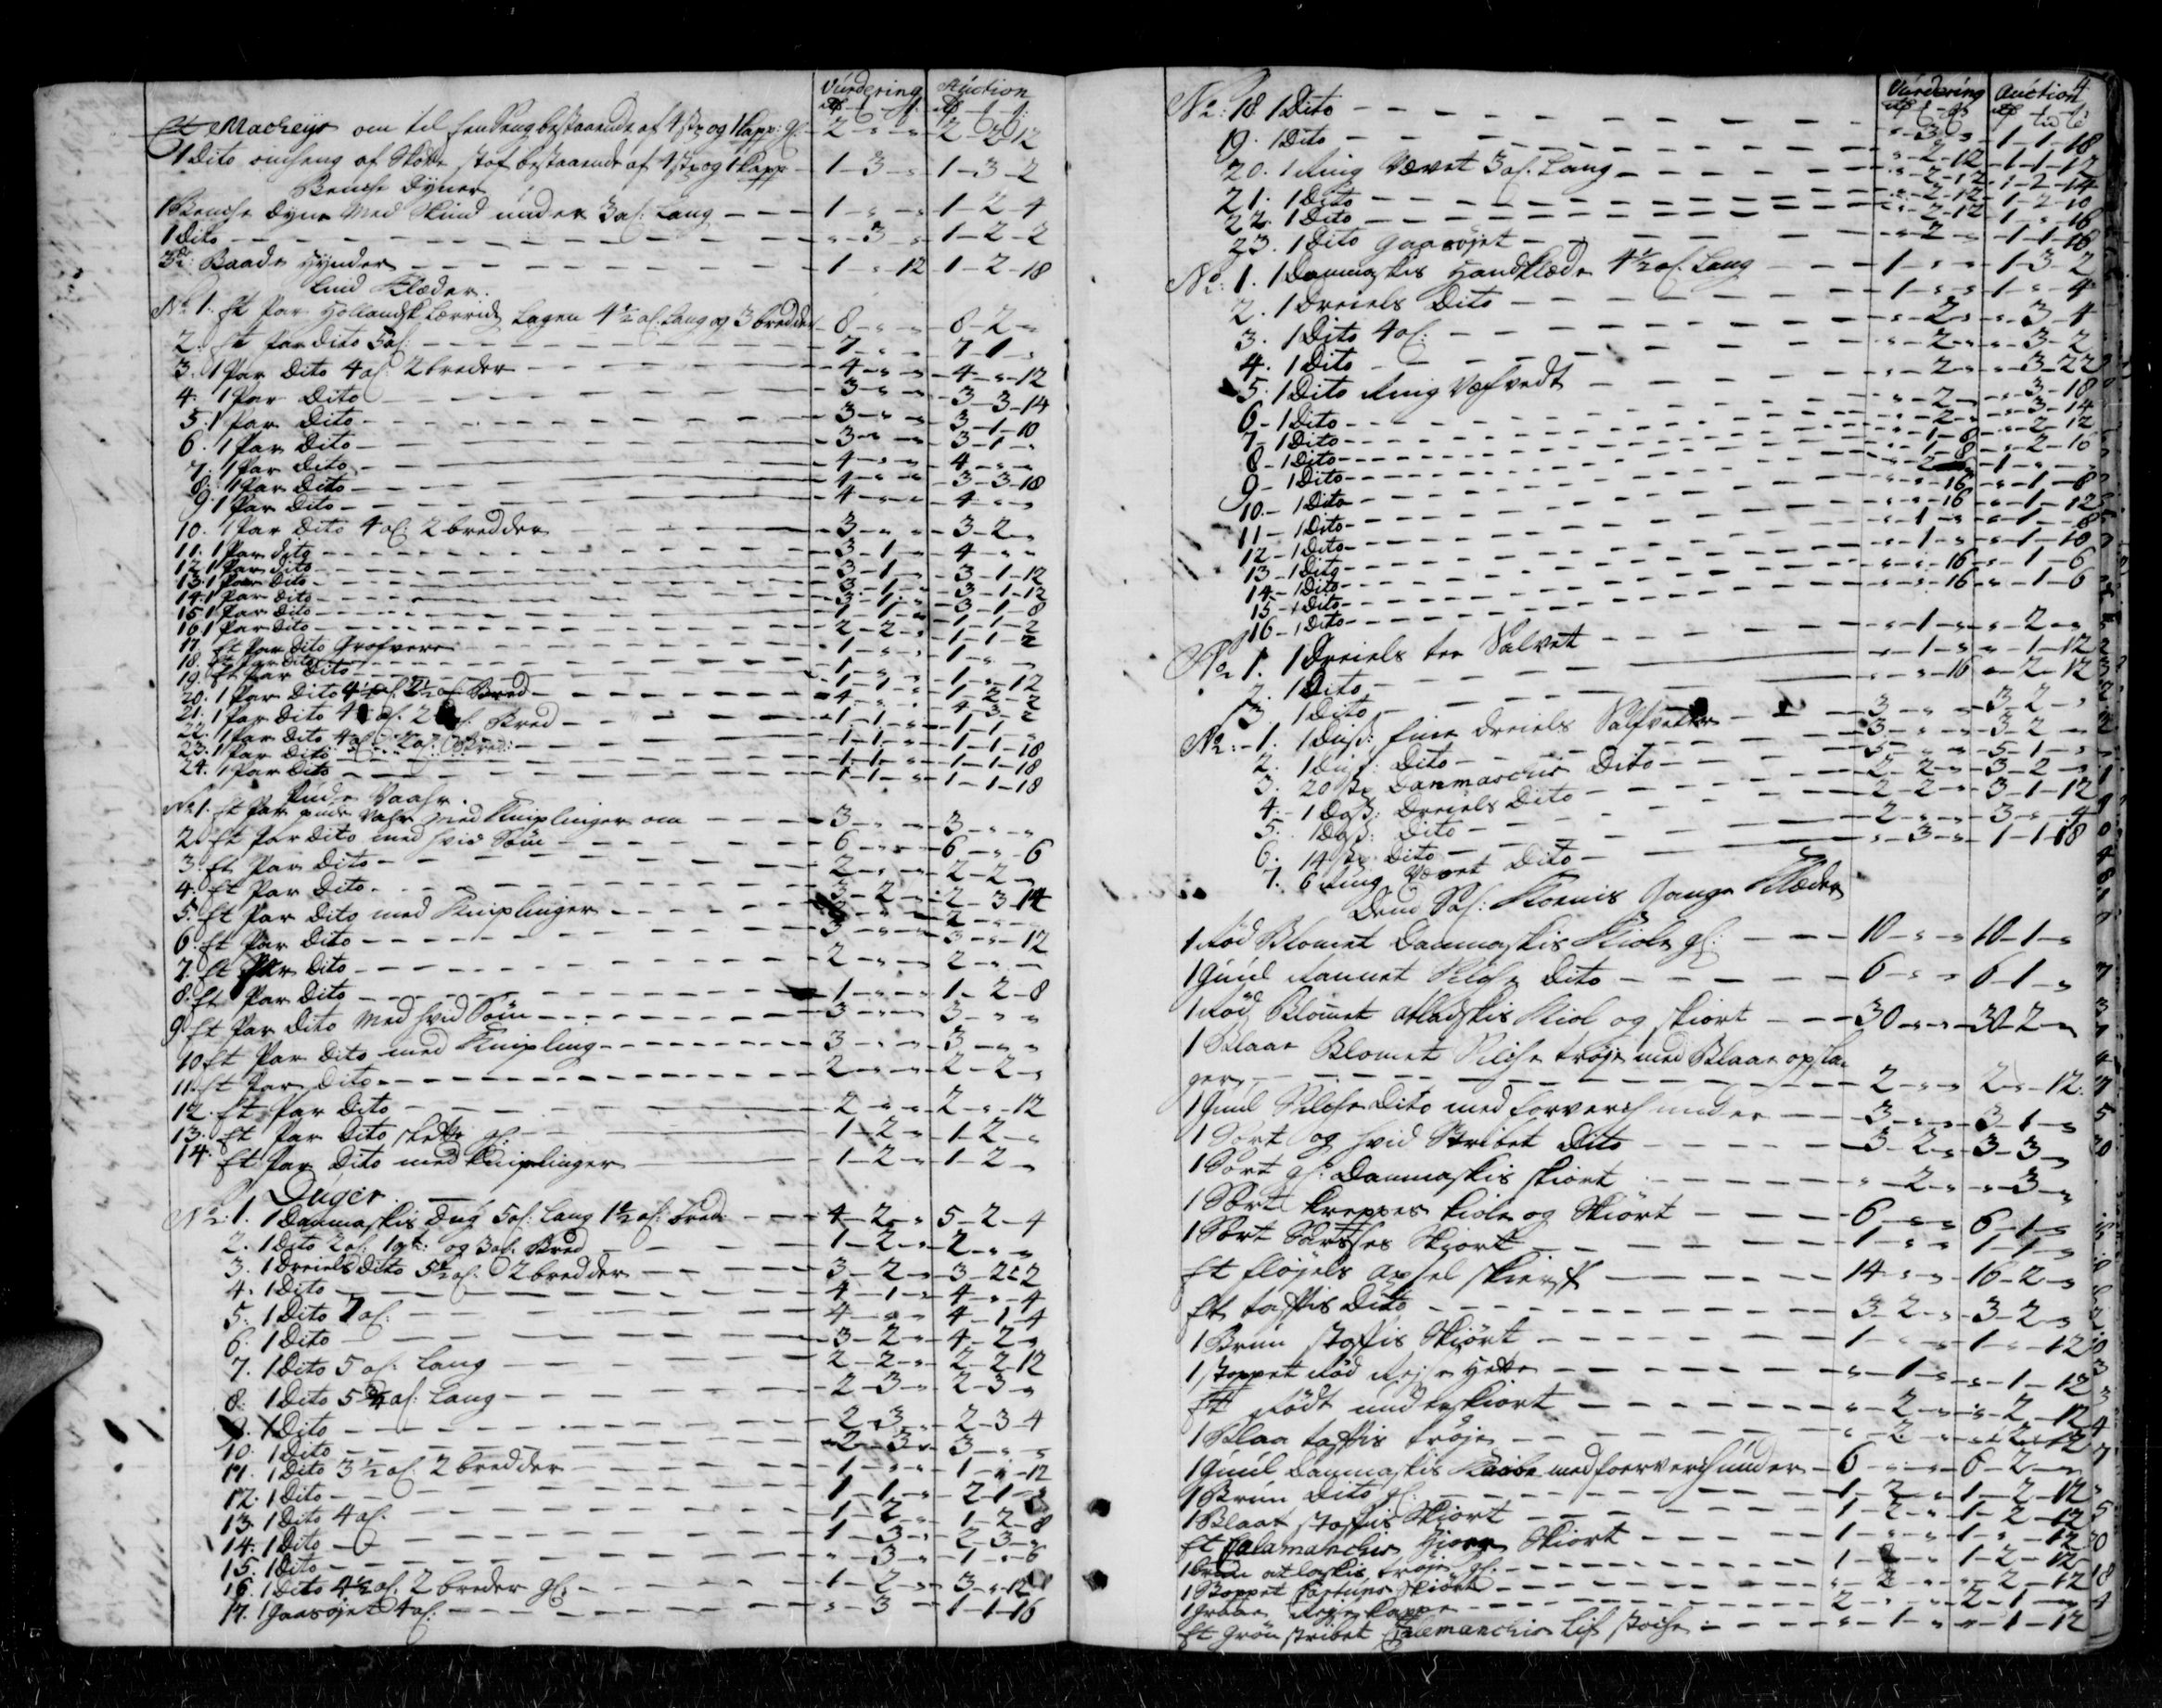 Vurdering Auction
Et Macheys om til En Seng bestaaende af 4 st: og 1 Kapp: gl: 2 - " - " 2 - 2 - 12
1 Dito omheng af stof bestaaende af 4 st: og 1 Kapp 1 - 3 - " 1 - 3 - 2
Benche Dyner
1 Benche Dyne med Skind under 3 al: Lang 1 - " - " 1 - 2 - 4
1 Dito " - 3 - " 1 - 2 - 2
3de Baads Hynder 1 - " - 12 1 - 2 - 18
Lind Klæder
No 1. Et Par Hollandsk Lærrids Lagen 4½ al: Lang og 3 bredder 8 - " - " 8 - 2 - "
2. Et par dito 5 al: 7 - " - " 7 - 1 - "
3. 1 Par Dito 4 al: 2 breder 4 - " - " 4 - " - 12
4. 1 Par Dito 3 - " - " 3 - 3 - 14
5. 1 Par Dito 3 - " - " 3 - 1 - 10
6. 1 Par Dito 3 - " - " 3 - 1 - "
7. 1 Par Dito 4 - " - " 4 - " - "
8. 1 Par Dito 4 - " - " 3 - 3 - 18
9. 1 Par Dito 4 - " - " 4 - " - "
10. 1 Par Dito 4 al: 2 bredder 3 - " - " 3 - 2 - "
11. 1 Par dito 3 - 1 - " 4 - " - "
12. 1 Par dito 3 - 1 - " 3 - 1 - 12
13. 1 Par Dito 3 - 1 - " 3 - 1 - 12
14. 1 Par Dito 3 - 1 - " 3 - 1 - 8
15. 1 Par Dito 1 - 1 - " 1 - 1 - 2
16. 1 Par Dito 2 - 2 - " 1 - 1 - 2
17. Et Par Dito Grofvere 1 - " - " 1 - " - "
18. Et Par Dito
19. Et Par Dito 1 - 1 - " 1 - " - 12
20. 1 Par Dito 4½ al: 2½ al: Bred 4 - " - " 1 - 2 - 2
21. 1 Par Dito 4 al: 2 al: Bred 1 - 1 - "
22. 1 Par Dito 4 al: 2 al: Bred 1 - 1 - " 1 - 1 - 18
23. 1 Par Dito 1 - 1 - " 1 - 1 - 18
24. 1 Par Dito 1 - 1 - " 1 - 1 - 18
Pude Vaahr
No 1. Et Par pude Vahr med Kniplinger om 3 - " - " 3 - " - "
2. Et Par Dito med hvid Søm 6 - " - " 6 - " - 6
3. Et Par Dito 2 - " - " 2 - 2 - "
4. Et Par Dito 3 - 2 - " 2 - 3 - 14
5. Et Par Dito med Kniplinger 2 - " - " 2 - " - "
6. Et Par Dito 3 - " - " 3 - " - 12
7. Et Par Dito 2 - " - " 2 - " - "
8. Et Par Dito 1 - " - " 1 - 2 - 8
9. Et Par Dito med hvid Søm 3 - " - " 3 - " - "
10. Et Par Dito med Knipling 3 - " - " 3 - " - "
11. Et Par Dito 2 - " - " 2 - 2 - "
12. Et Par Dito 2 - " - " 2 - " - 12
13. Et Par Dito slette gl: 1 - 2 - " 1 - 2 - "
14. Et Par Dito med Kniplinger 1 - 2 - " 1 - 2 - "
Duger
No: 1. 1 Danmaskis Dug 5 al: Lang 1½ al: bred 4 - 2 - " 5 - 2 - 4
2. 1 Dito 2 al: 1 qt: og 3 al: Bred 1 - 2 - " 2 - " - "
3. 1 Dreiels Dito 5½ al: 2 bredder 3 - 2 - " 3 - 2 - 2
4. 1 Dito 4 - 1 - " 4 - " - 4
5. 1 Dito 7 al: 4 - " - " 4 - 1 - 4
6. 1 Dito 3 - 2 - " 4 - 2 - "
7. 1 Dito 5 al: Lang 2 - 2 - " 2 - 2 - 12
8. 1 Dito 5¾ al: Lang 2 - 3 - " 2 - 3 - "
9. 1 Dito 2 - 3 - " 2 - 3 - 4
10. 1 Dito 2 - 3 - " 3 - " - "
11. 1 Dito 3½ al: 2 bredder 1 - " - " 1 - " - 12
12. 1 Dito 1 - 1 - " 2 - 1 -
13. 1 Dito 4 al: 1 - 2 - " 1 - 2 - 8
14. 1 Dito 1 - 3 - " 2 - 3 - "
15. 1 Dito " - 3 - " 1 - " - 6
16. 1 Dito 4½ al: 2 breder gl: 1 - 2 - " 3 - " - 12
17. 1 Gaasøjet 4 al: " - 3 - " 1 - 1 - 16
4
Vurdering Auction
No: 18. 1 Dito " - 3 - " 1 - 1 - 18
19. 1 Dito " - 2 - 12 1 - 1 - 12
20. 1 Ring Vævet 3 al: Lang " - 2 - 12 1 - 2 - 14
21. 1 Dito " - 2 - 12 1 - 2 - 10
22. 1 Dito " - 2 - 12 1 - " - 16
23. 1 Dito gaasøjet " - 2 - " 1 - 1 - 16
No: 1. 1 Danmaskis Handklæde 4½ al: Lang 1 - " - " 1 - 3 - 2
2. 1 Dreiels Dito 1 - " - " 1 - " - 4
3. 1 Dito 4 al: " - 2 - " " - 3 - 4
4. 1 Dito " - 2 - " " - 3 - 2
5. 1 Dito Ring Vefvedt " - 2 - " " - 3 - 22
6 - 1 Dito " - 2 - " " - 3 - 18
7 - 1 Dito " - 2 - " " - 3 - 14
8 - 1 Dito " - 1 - 8 " - 2 - 12
9 - 1 Dito " - 1 - 8 " - 2 - 10
10 - 1 Dito " - 2 - " 1 - " - "
11 - 1 Dito " - " - 16 " - 1 - 8
12 - 1 Dito " - " - 16 " - 1 - 12
13 - 1 Dito " - 1 - " " - 1 - 8
14 - 1 Dito " - 1 - " " - 1 - 10
15 - 1 Dito " - " - 16 " - 1 - 6
16 - 1 Dito " - " - 16 " - 1 - 6
No 1. 1 Dreiels tee Salvet " - 1 - " " - 2 - "
2. 1 Dito " - 1 - " " - 1 - 12
3. 1 Dito " - " - 16 " - 2 - 12
No: 1. 1 Duß: fine dreiels Salfvetter 3 - " - " 3 - 2 - "
2. 1 Duß: Dito 3 - " - " 3 - 2 - "
3. 20 st: Danmaschis Dito 5 - " - " 5 - 1 - "
4. 1 Doß: Dreiels Dito 2 - 2 - " 3 - 2 - "
5. 1 Doß: Dito 2 - 2 - " 3 - 1 - 12
6. 14 st: Dito 2 - " - " 3 - " - 4
7. 6 Ring Vævet Dito " - 3 - " 1 - 1 - 18
Dend Sal: Konis Gange Klæder
1 Rød Blomet Danmaskis Kiole gl: 10 - " - " 10 - 1 - "
1 Guul Rannet Silche Dito 6 - " - " 6 - 1 - "
1 Rød Blomet atladskis Kiol og skiort 30 - " - " 30 - 2 - "
1 Blaae Blomet Silche trøje med Blaae opsla
ger 2 - " - " 2 - " - 12
1 Guul Silche Dito med forverch under 3 - " - " 3 - 1 - "
1 Sort og hvid Stribet Dito 3 - 2 - " 3 - 3 - "
1 Sort gl: Danmaskis skiort " - 2 - " " - 3 - "
1 Sort kreppes kiole og Skiørt 6 - " - " 6 - 1 - "
1 Sort Skiort 1 - " - " 1 - 1 - "
Et fløjels 14 - " - " 16 - 2 - "
Et taftis Dito 3 - 2 - " 3 - 2 - "
1 Brun stoffis Skiørt 1 - " - " 1 - " - 12
1 stoppet Rød Rejse Hette " - 1 - " " - 1 - 12
Et Rødt underskiort " - 2 - " " - 2 - 12
1 Blaa taftis trøje " - 2 - " " - 2 - 12
1 Guul Danmaskis med foerverch under 6 - " - " 6 - 2 - "
1 Brun Dito gl: 1 - 2 - " 1 - 2 - 12
1 Blaat stoffis Skiort 1 - 2 - " 1 - 2 - 12
Et Calamanchis Skiort 1 - " - " 1 - " - 12
1 atlaskis trøje gl: 1 - " - " 1 - 2 - 12
1 Stoppet Cartuns Skiort " - 2 - " " - 2 - 12
1 Rejse Kappe 2 - " - " 2 - 1 - "
Et Grøn stribet Calemanchis lif støche " - 1 - " " - 1 - 12